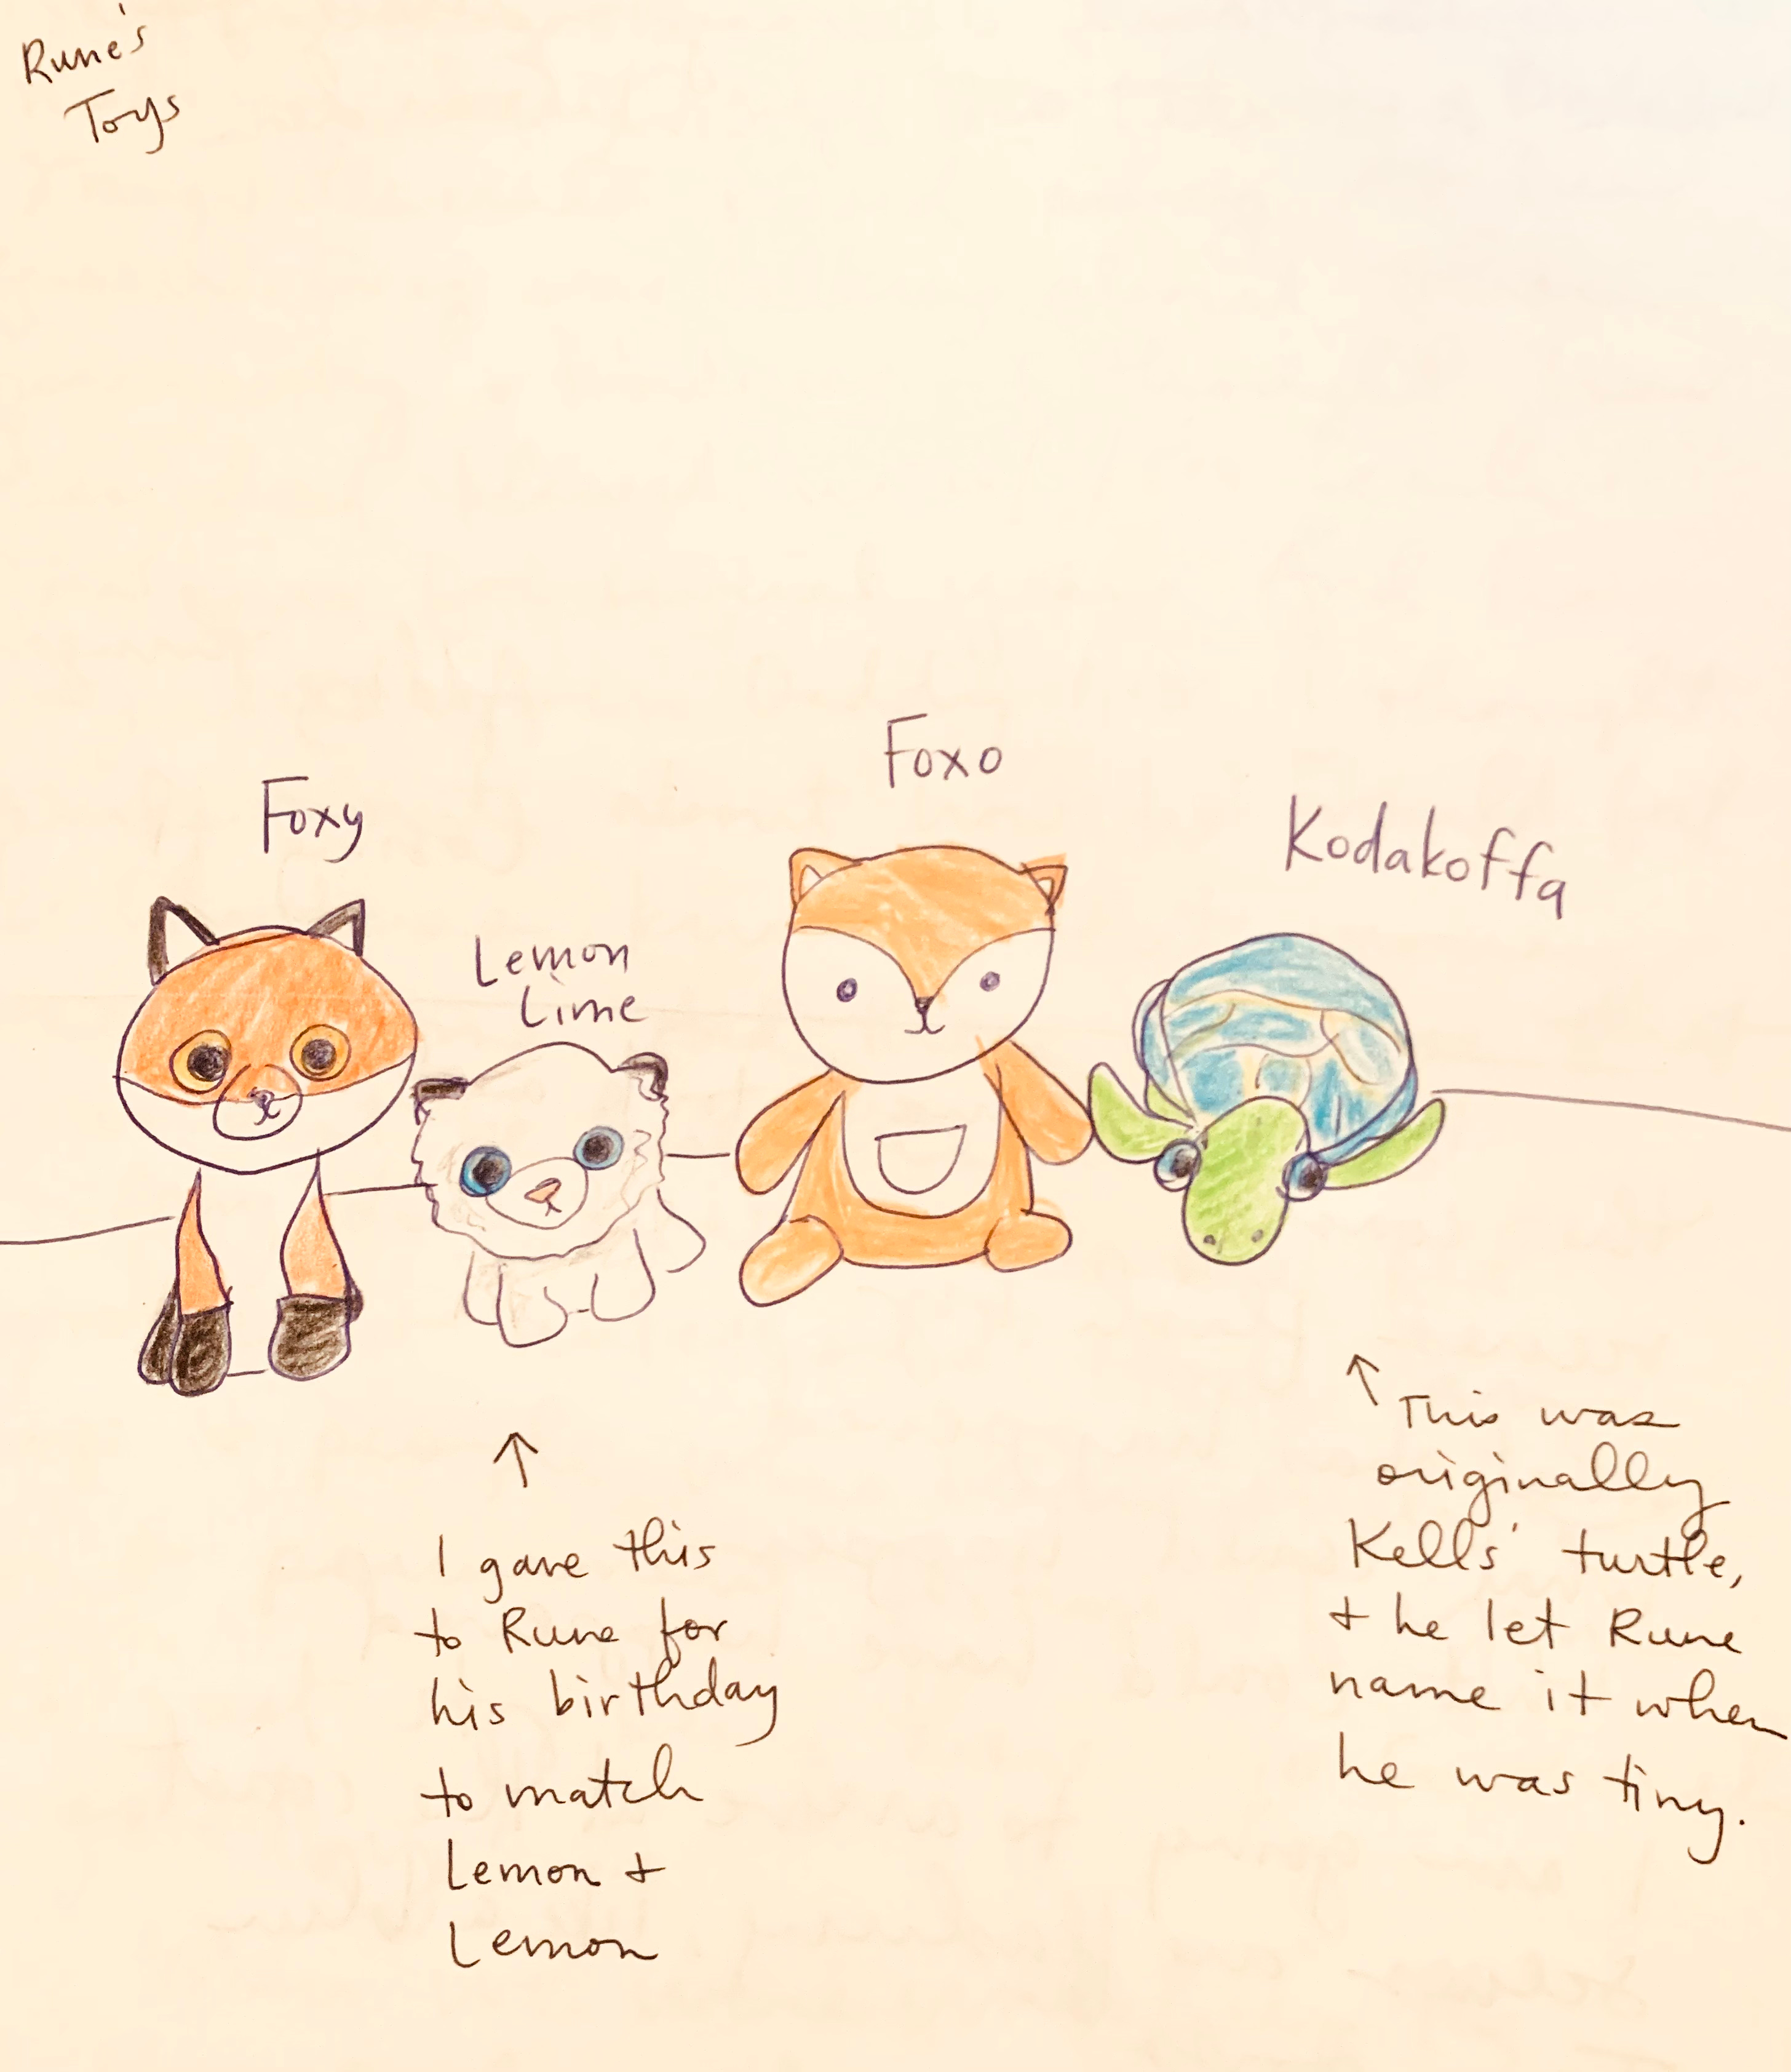 Rune's
Toys
Foxy
Lemon
Lime
Foxo
Kodakoffa
↑
I gave this
to Rune for
his birthday
to match
Lemon +
Lemon
↑ This was
originally
Kells' turtle,
+ he let Rune
name it when
he was tiny.